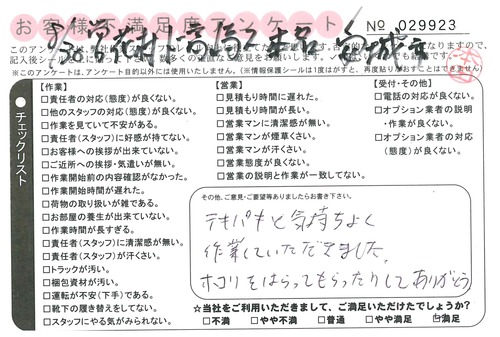 お客様不満足度アンケート
No 029923
8/30
記入後シール
※このアンケートは、アンケート目的以外には使用いたしません。(※情報保護シールは1度はがすと、再度貼りなおすことはできません)
●チェックリスト
【作業】
□責任者の対応(態度)が良くない。
□他のスタッフの対応(態度)が良くない。
□作業を見ていて不安がある。
□責任者(スタッフ)に好感が持てない。
□お客様への挨拶が出来ていない。
□ご近所への挨拶・気遣いが無い。
□作業開始前の内容確認がなかった。
□作業開始時間が遅れた。
□荷物の取り扱いが雑である。
□お部屋の養生が出来ていない。
□作業時間が長すぎる。
□責任者(スタッフ)に清潔感が無い。
□責任者(スタッフ)が汗くさい。
□トラックが汚い。
□梱包資材が汚い。
□運転が不安(下手)である。
□靴下の履き替えをしてない。
□スタッフにやる気がみられない。
【営業】
□見積もり時間に遅れた。
□見積もり時間が長い。
□営業マンに清潔感が無い。
□営業マンが煙草くさい。
□営業マンが汗くさい。
□営業態度が良くない。
□営業の説明と作業が一致してない。
【受付・その他】
□電話の対応が良くない。
□オプション業者の説明
・作業が良くない。
□オプション業者の対応
(態度)が良くない。
その他、ご意見・ご要望等ありましたらお書き下さい。
テキパキと気持ちよく
作業していただきました。
ホコリをはらってもらったりしてありがとう
☆当社をご利用いただきまして、ご満足いただけたでしょうか?
□不満 □やや不満 □普通 □やや満足 ☑満足